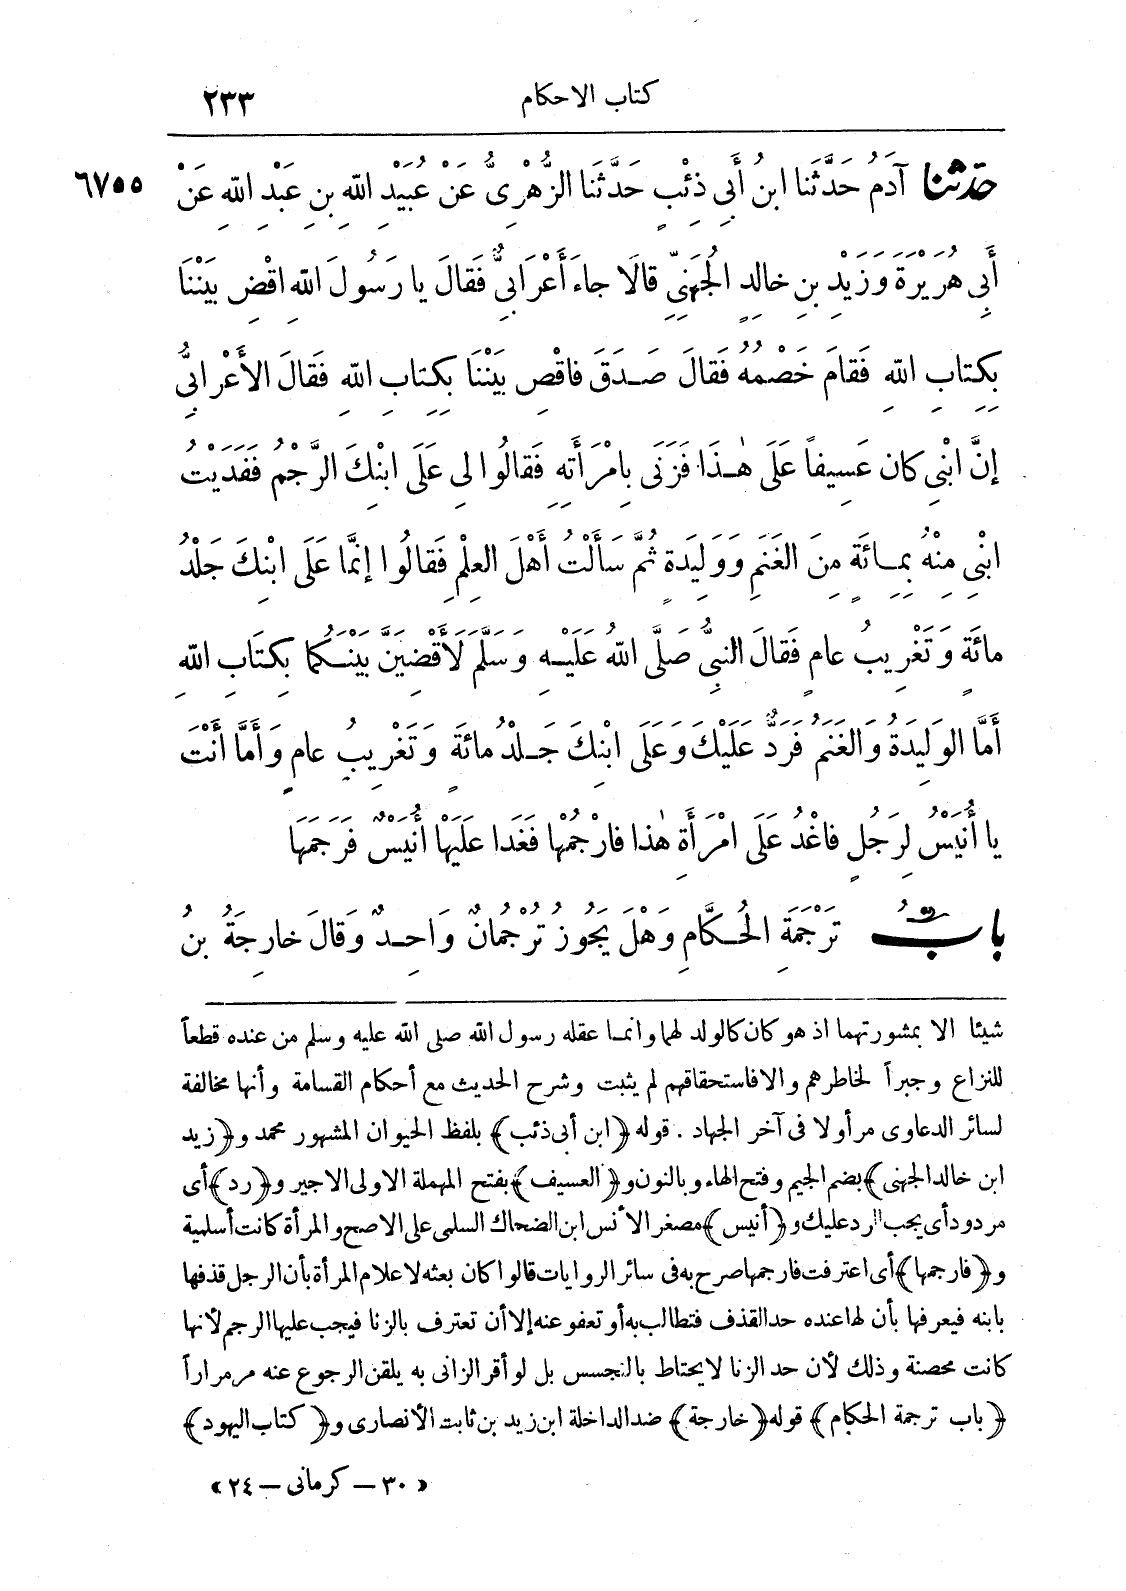 كتاب الاحكام ٢٣٣
٦٧٥٥ حَدَّثَنَا آدَمُ حَدَّثَنَا ابنُ أَبِي ذِئْبٍ حَدَّثَنَا الزُّهْرِىُّ عَنْ عُبَيْدِ اللهِ بنِ عَبْدِ اللهِ عَنْ
أَبِي هُرَيْرَةَ وَزَيْدِ بنِ خالِدٍ الجُهَنِيِّ قالَا جاءَ أَعْرَابِيٌّ فَقالَ يا رَسُولَ اللهِ اقْضِ بَيْنَنَا
بِكِتابِ اللهِ فَقامَ خَصْمُهُ فَقالَ صَدَقَ فاقْضِ بَيْنَنَا بِكِتابِ اللهِ فَقالَ الأَعْرابِىُّ
إنَّ ابْنِي كان عَسِيفاً عَلَى هٰذَا فَزَنَى بِامْرَأَتِهِ فَقالُوا لِى عَلَى ابْنِكَ الرَّجْمُ فَفَدَيْتُ
ابْنِي مِنْهُ بِمِائَةٍ مِنَ الغَنَمِ وَوَلِيدَةٍ ثُمَّ سَأَلْتُ أَهْلَ العِلْمِ فَقالُوا إنَّمَا عَلَى ابْنِكَ جَلْدُ
مائَةٍ وَتَغْرِيبُ عامٍ فَقالَ النبِيُّ صَلَّى اللهُ عَلَيْهِ وَسَلَّمَ لَأَقْضِيَنَّ بَيْنَكُما بِكِتَابِ اللهِ
أَمَّا الوَلِيدَةُ وَالغَنَمُ فَرَدٌّ عَلَيْكَ وَعَلَى ابْنِكَ جَلْدُ مائَةٍ وَتَغْرِيبُ عامٍ وَأَمَّا أَنْتَ
يا أُنَيْسُ لِرَجُلٍ فاغْدُ عَلَى امْرَأَةِ هٰذا فارْجُمْها فَغَدا عَلَيْها أُنَيْسٌ فَرَجَمَها
بابُ تَرْجَمَةِ الحُكَّامِ وَهْلَ يَجُوزُ تُرْجُمَانٌ وَاحِدٌ وَقالَ خارِجَةُ بنُ
شيئا الا بمشورتهما اذ هو كان كالولد لهما وانمـا عقله رسول الله صلى الله عليه وسلم من عنده قطعاً
للنزاع وجبراً لخاطرهم والا فاستحقاقهم لم يثبت وشرح الحديث مع أحكام القسامة وأنها مخالفة
لسائر الدعاوى مر أولا فى آخر الجهاد . قوله ﴿ابن أبى ذئب﴾ بلفظ الحيوان المشهور محمد و﴿زيد
ابن خالد الجهنى﴾ بضم الجيم وفتح الهاء وبالنون و﴿العسيف﴾ بفتح المهملة الاولى الاجير و﴿رد﴾ أى
مردود أى يجب الرد عليك و﴿أنيس﴾ مصغر الأنس ابن الضحاك السلمى على الاصح والمرأة كانت أسلمية
و﴿فارجمها﴾ أى اعترفت فارجمها صرح به فى سائر الروايات قالوا كان بعثه لاعلام المرأة بأن الرجل قذفها
بابنه فيعرفها بأن لها عنده حد القذف فتطالب به أو تعفو عنه إلا أن تعترف بالزنا فيجب عليها الرجم لأنها
كانت محصنة وذلك لأن حد الزنا لا يحتاط بالتجسس بل لو أقر الزانى به يلقن الرجوع عنه مر مراراً
﴿باب ترجمة الحكام﴾ قوله ﴿خارجة﴾ ضد الداخلة ابن زيد بن ثابت الأنصارى و﴿كتاب اليهود﴾
« ٣٠ – كرمانى – ٢٤ »